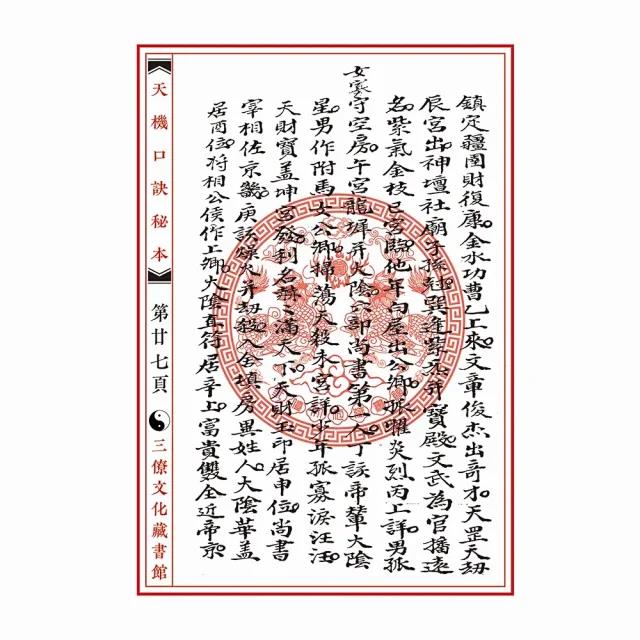 鎮定疆圉財復康金水功曹乙上來文章俊杰出奇才天罡天劫
辰宮出神壇社廟子孫冠巽逢紫炁并寶殿文武為官播遠
名紫氣金枝巳宮臨他年白屋出公卿孤曜炎烈丙上詳男孤
女寡守空房午宮龍墀并太陰六部尚書第一人丁該帝輦太陰
星男作附馬女公卿掃蕩天殺未宮詳少年孤寡淚汪汪
天財寶盖坤宮發利名稱滿天下天財玉印居申位尚書
宰相佐京畿庚該燥火并劫殺入舍填房異姓人太陰華盖
居酉位将相公侯作上卿太陰直符居辛上富貴雙全近帝京
天機口訣秘本
第廿七頁
三僚文化藏書館